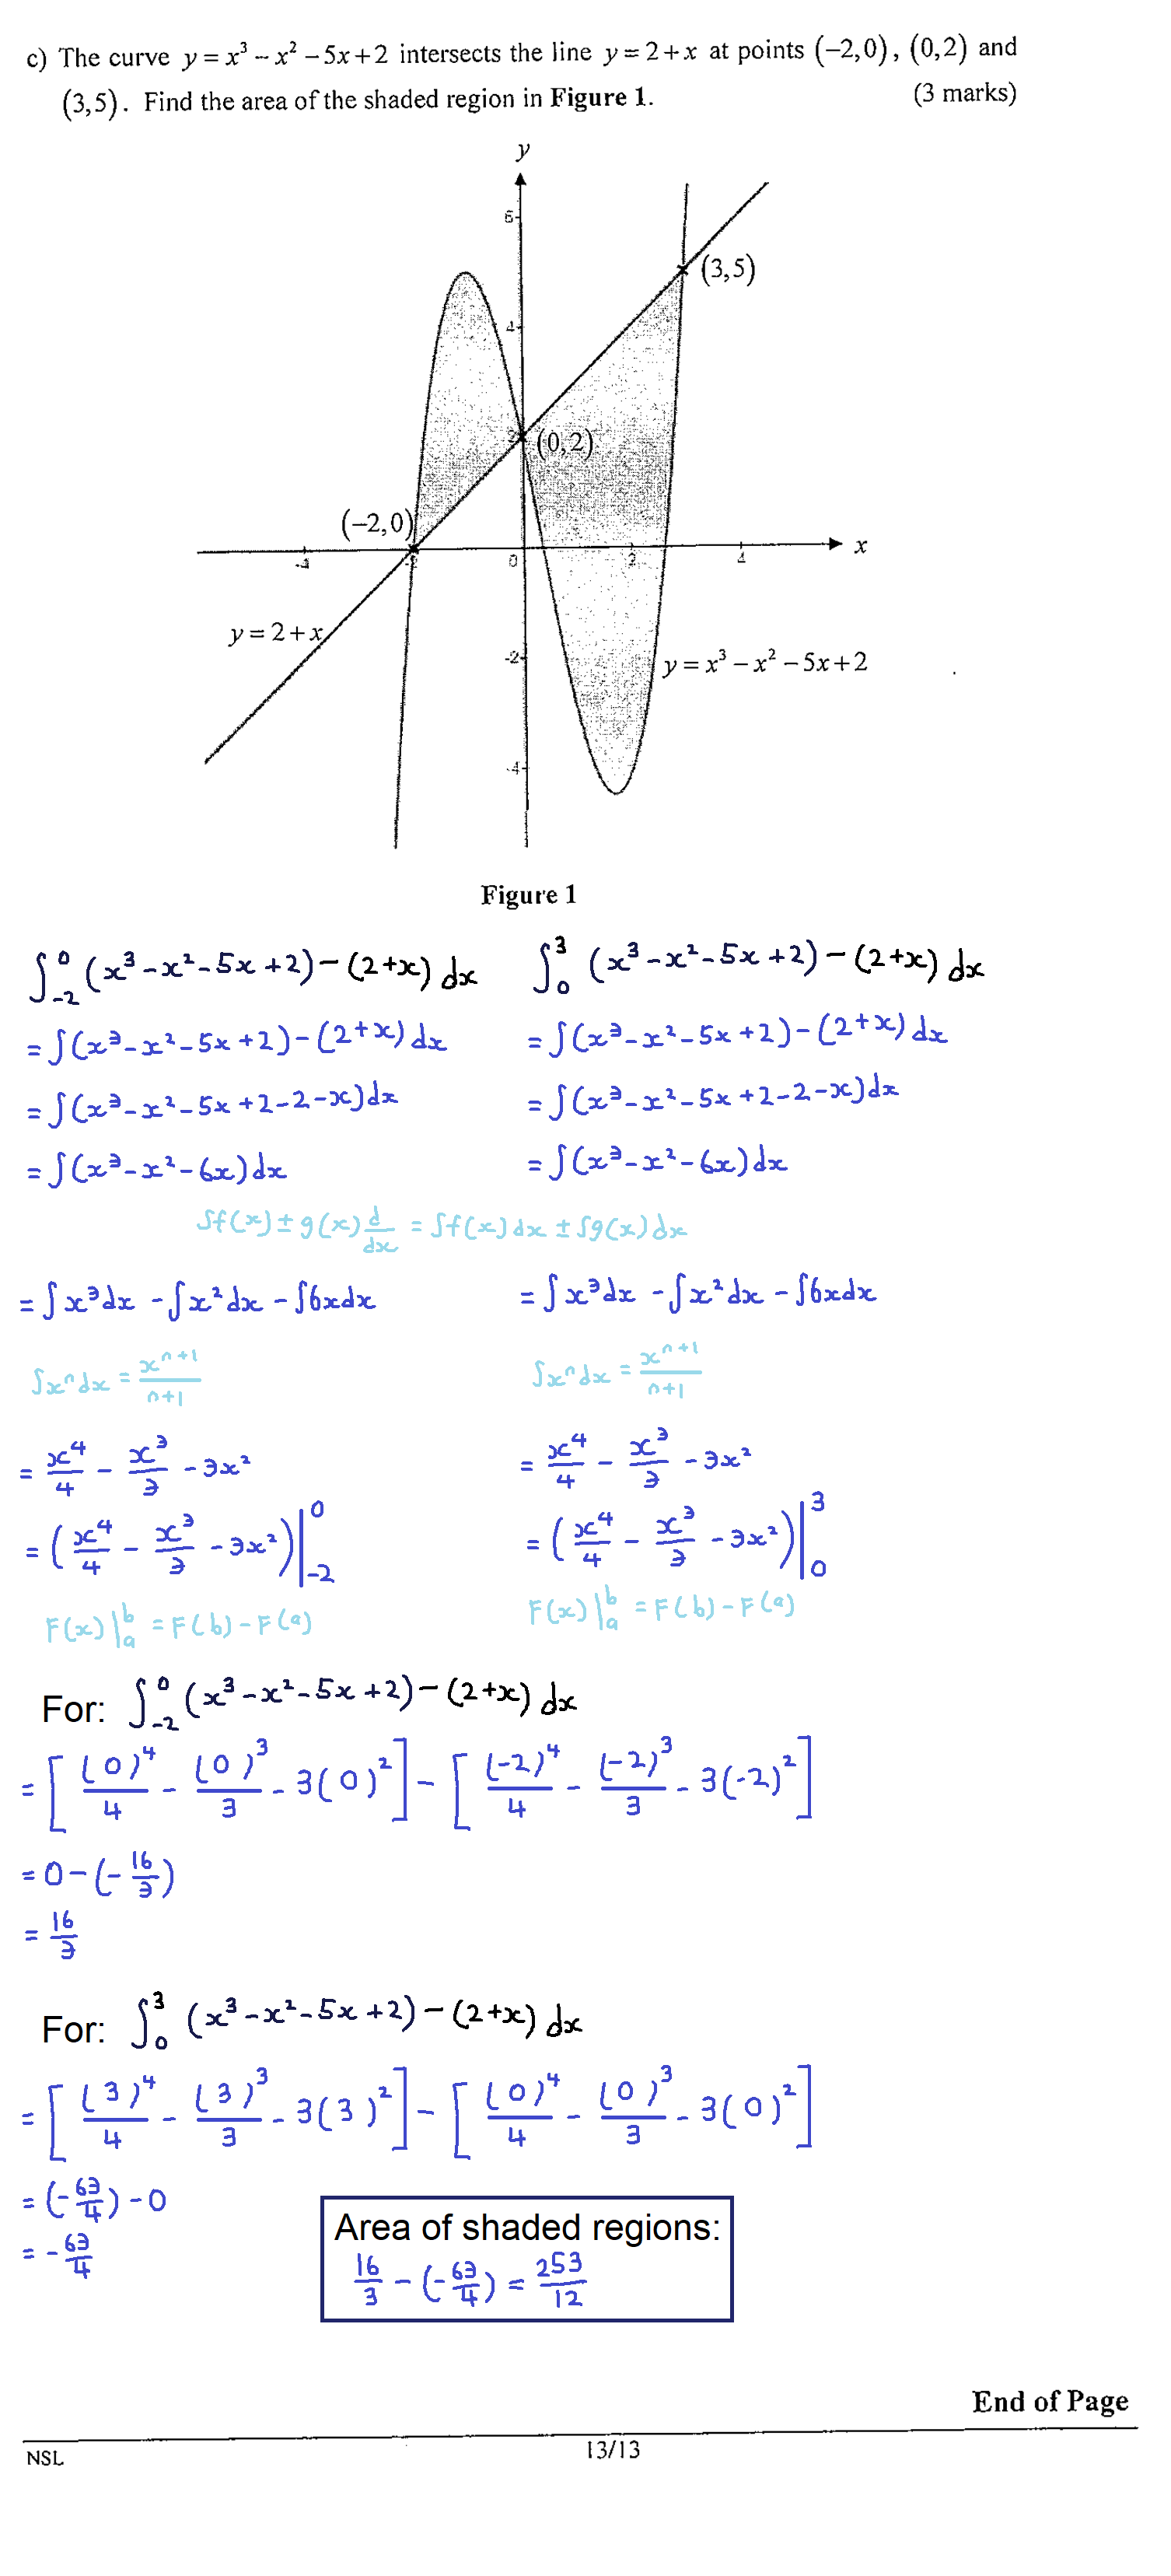 c) The curve y = x³ − x² − 5x + 2 intersects the line y = 2 + x at points (−2,0), (0,2) and
(3,5). Find the area of the shaded region in Figure 1. (3 marks)
y
6
(3,5)
4
2 (0,2)
(−2,0)
-4 -2 0 2 4 x
y = 2 + x
-2
y = x³ − x² − 5x + 2
-4
Figure 1
∫₋₂⁰ (x³ − x² − 5x + 2) − (2+x) dx ∫₀³ (x³ − x² − 5x + 2) − (2+x) dx
= ∫(x³ − x² − 5x + 2) − (2+x) dx = ∫(x³ − x² − 5x + 2) − (2+x) dx
= ∫(x³ − x² − 5x + 2 − 2 − x) dx = ∫(x³ − x² − 5x + 2 − 2 − x) dx
= ∫(x³ − x² − 6x) dx = ∫(x³ − x² − 6x) dx
∫f(x) ± g(x) d/dx = ∫f(x) dx ± ∫g(x) dx
= ∫x³dx − ∫x²dx − ∫6xdx = ∫x³dx − ∫x²dx − ∫6xdx
∫xⁿdx = xⁿ⁺¹/n+1 ∫xⁿdx = xⁿ⁺¹/n+1
= x⁴/4 − x³/3 − 3x² = x⁴/4 − x³/3 − 3x²
= (x⁴/4 − x³/3 − 3x²)|₋₂⁰ = (x⁴/4 − x³/3 − 3x²)|₀³
F(x)|ₐᵇ = F(b) − F(a) F(x)|ₐᵇ = F(b) − F(a)
For: ∫₋₂⁰ (x³ − x² − 5x + 2) − (2+x) dx
= [(0)⁴/4 − (0)³/3 − 3(0)²] − [(-2)⁴/4 − (-2)³/3 − 3(-2)²]
= 0 − (−16/3)
= 16/3
For: ∫₀³ (x³ − x² − 5x + 2) − (2+x) dx
= [(3)⁴/4 − (3)³/3 − 3(3)²] − [(0)⁴/4 − (0)³/3 − 3(0)²]
= (−63/4) − 0
= −63/4
Area of shaded regions:
16/3 − (−63/4) = 253/12
End of Page
NSL 13/13